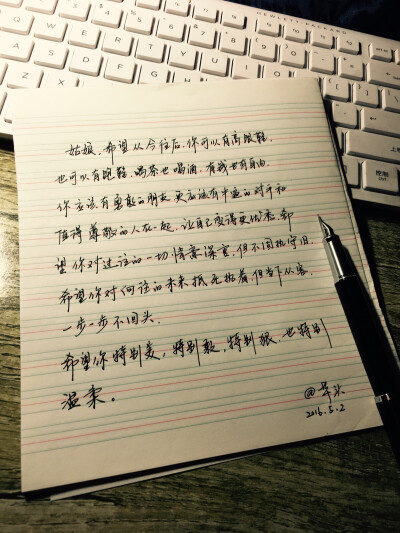 HEWLETT-PACKARD
Q W E R T Y U
姑娘,希望从今往后,你可以有高跟鞋,
也可以有跑鞋,喝茶也喝酒,有钱也有自由.
你应该有勇敢的朋友,更应该有牛逼的对手和
值得尊敬的人在一起,让自己变得更优秀.希
望你对过往的一切情意深重,但不固执守旧.
希望你对向往的未来抵死执着,但当下从容.
一步一步不回头.
希望你特别美,特别敢,特别狠,也特别
温柔。
2016.5.2